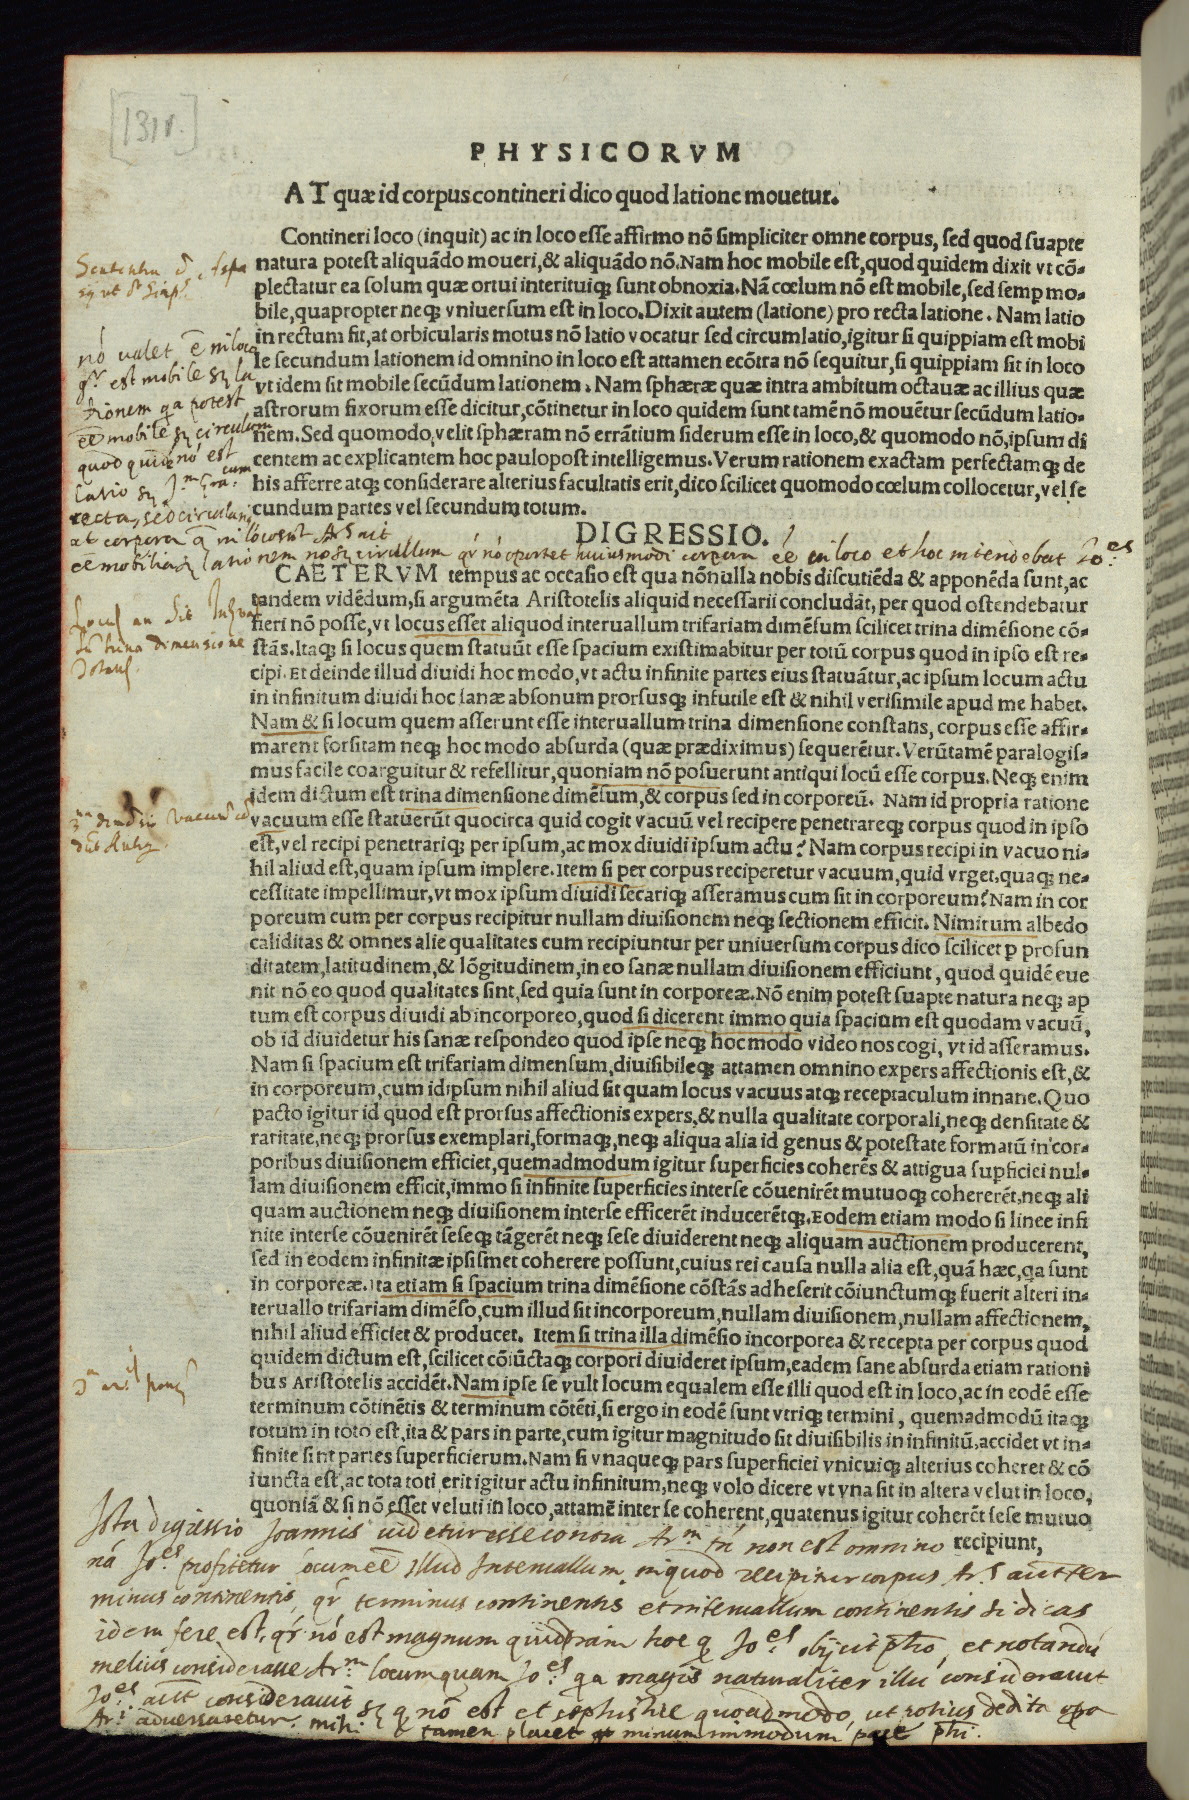 [131v.]
PHYSICORVM
AT quæ id corpus contineri dico quod latione movetur.
Contineri loco (inquit) ac in loco esse affirmo nõ simpliciter omne corpus, sed quod suapte
natura potest aliquãdo moueri, & aliquãdo nõ. Nam hoc mobile est, quod quidem dixit vt cõ-
plectatur ea solum quæ ortui interituiq; sunt obnoxia. Nã cœlum nõ est mobile, sed semp mo-
bile, quapropter neq; vniuersum est in loco. Dixit autem (latione) pro recta latione. Nam latio
in rectum fit, at orbicularis motus nõ latio vocatur sed circumlatio, igitur si quippiam est mobi
le secundum lationem id omnino in loco est attamen ecõtra nõ sequitur, si quippiam sit in loco
vt idem sit mobile secũdum lationem. Nam sphæræ quæ intra ambitum octauæ ac illius quæ
astrorum fixorum esse dicitur, cõtinetur in loco quidem sunt tamẽ nõ mouẽtur secũdum latio-
nem. Sed quomodo velit sphæram nõ errãtium siderum esse in loco, & quomodo nõ, ipsum di
centem ac explicantem hoc paulopost intelligemus. Verum rationem exactam perfectamq; de
his afferre atq; considerare alterius facultatis erit, dico scilicet quomodo cœlum collocetur, vel se
cundum partes vel secundum totum.
nó valet ẽ in loco
est mobile
lationem qa potest
ẽe mobile circulum
quod quidẽ nó est
latio
recta, sed circularis
at corpora in loco Ar.s ait
ẽe mobilia lationem circullum qr nó oportet huiusmodi corpora ẽe in loco et hoc intendebat Jo.es
DIGRESSIO.
CAETERVM tempus ac occasio est qua nõnulla nobis discutiẽda & apponẽda sunt, ac
tandem vidẽdum, si argumẽta Aristotelis aliquid necessarii concludãt, per quod ostendebatur
fieri nõ posse, vt locus esset aliquod interuallum trifariam dimẽsum scilicet trina dimẽsione cõ-
stãs. Itaq; si locus quem statuũt esse spacium existimabitur per totũ corpus quod in ipso est re-
cipi. Et deinde illud diuidi hoc modo, vt actu infinite partes eius statuãtur, ac ipsum locum actu
in infinitum diuidi hoc sanæ absonum prorsusq; infutile est & nihil verisimile apud me habet.
Nam & si locum quem asserunt esse interuallum trina dimensione constans, corpus esse affir-
marent forsitam neq; hoc modo absurda (quæ prædiximus) sequerẽtur. Verũtamẽ paralogis-
mus facile coarguitur & refellitur, quoniam nõ posuerunt antiqui locũ esse corpus. Neq; enim
idem dictum est trina dimensione dimẽsum, & corpus sed in corporeũ. Nam id propria ratione
vacuum esse statuerũt quocirca quid cogit vacuũ vel recipere penetrareq; corpus quod in ipso
est, vel recipi penetrariq; per ipsum, ac mox diuidi ipsum actu? Nam corpus recipi in vacuo ni-
hil aliud est, quam ipsum implere. Item si per corpus reciperetur vacuum, quid vrget, quaq; ne-
cessitate impellimur, vt mox ipsum diuidi secariq; asseramus cum sit in corporeum? Nam in cor
poreum cum per corpus recipitur nullam diuisionem neq; sectionem efficit. Nimirum albedo
caliditas & omnes alie qualitates cum recipiuntur per uniuersum corpus dico scilicet p profun
ditatem, latitudinem, & lõgitudinem, in eo sanæ nullam diuisionem efficiunt, quod quidẽ eue
nit nõ eo quod qualitates sint, sed quia sunt in corporeæ. Nõ enim potest suapte natura neq; ap
tum est corpus diuidi ab incorporeo, quod si dicerent immo quia spacium est quodam vacuũ,
ob id diuidetur his sanæ respondeo quod ipse neq; hoc modo video nos cogi, vt id asseramus.
Nam si spacium est trifariam dimensum, diuisibileq; attamen omnino expers affectionis est, &
in corporeum, cum idipsum nihil aliud sit quam locus vacuus atq; receptaculum innane. Quo
pacto igitur id quod est prorsus affectionis expers, & nulla qualitate corporali, neq; densitate &
raritate, neq; prorsus exemplari, formaq;, neq; aliqua alia id genus & potestate formatũ in cor-
poribus diuisionem efficiet, quemadmodum igitur superficies coherẽs & attigua supficiei nul-
lam diuisionem efficit, immo si infinite superficies interse cõuenirẽt mutuoq; cohererẽt, neq; ali
quam auctionem neq; diuisionem interse efficerẽt inducerẽtq;. Eodem etiam modo si linee infi
nite interse cõuenirẽt seseq; tãgerẽt neq; sese diuiderent neq; aliquam auctionem producerent,
sed in eodem infinitæ ipsismet coherere possunt, cuius rei causa nulla alia est, quã hæc, qa sunt
in corporeæ. Ita etiam si spacium trina dimẽsione cõstãs adheserit cõiunctumq; fuerit alteri in-
teruallo trifariam dimẽso, cum illud sit incorporeum, nullam diuisionem, nullam affectionem,
nihil aliud efficiet & producet. Item si trina illa dimẽsio incorporea & recepta per corpus quod
quidem dictum est, scilicet cõiũctaq; corpori diuideret ipsum, eadem sane absurda etiam rationi
bus Aristotelis accidẽt. Nam ipse se vult locum equalem esse illi quod est in loco, ac in eodẽ esse
terminum cõtinẽtis & terminum cõtẽti, si ergo in eodẽ sunt vtriq; termini, quemadmodũ itaq;
totum in toto est, ita & pars in parte, cum igitur magnitudo sit diuisibilis in infinitũ, accidet vt in-
finite sint partes superficierum. Nam si vnaqueq; pars superficiei vnicuiq; alterius coheret & cõ
iuncta est, ac tota toti erit igitur actu infinitum, neq; volo dicere vt vna sit in altera velut in loco,
quoniã & si nõ esset veluti in loco, attamẽ inter se coherent, quatenus igitur coherẽt sese mutuo
recipiunt,
Locus an sit
trina dimensione
Ista digressio Joannis uidetur esse contra Ar.m tñ non est omnino
nã Jo.es profitetur locum ẽe illud Interuallum in quod recipitur corpus Ar.s autẽ ter
minus continentis, qr terminus continentis et interuallum continentis si dicas
idem fere est, qr nó est magnum quidtram hoc q Jo.es obijcit pho, et notandũ
melius considerasse Ar.m locum quam Jo.es qa magis naturaliter illũ considerauit
Jo.es autẽ considerauit q nõ est et sophistice quodãmodo, ut potius dedita opa
Ar.i aduersaretur. mihi tamen placet minimum immodum phi.